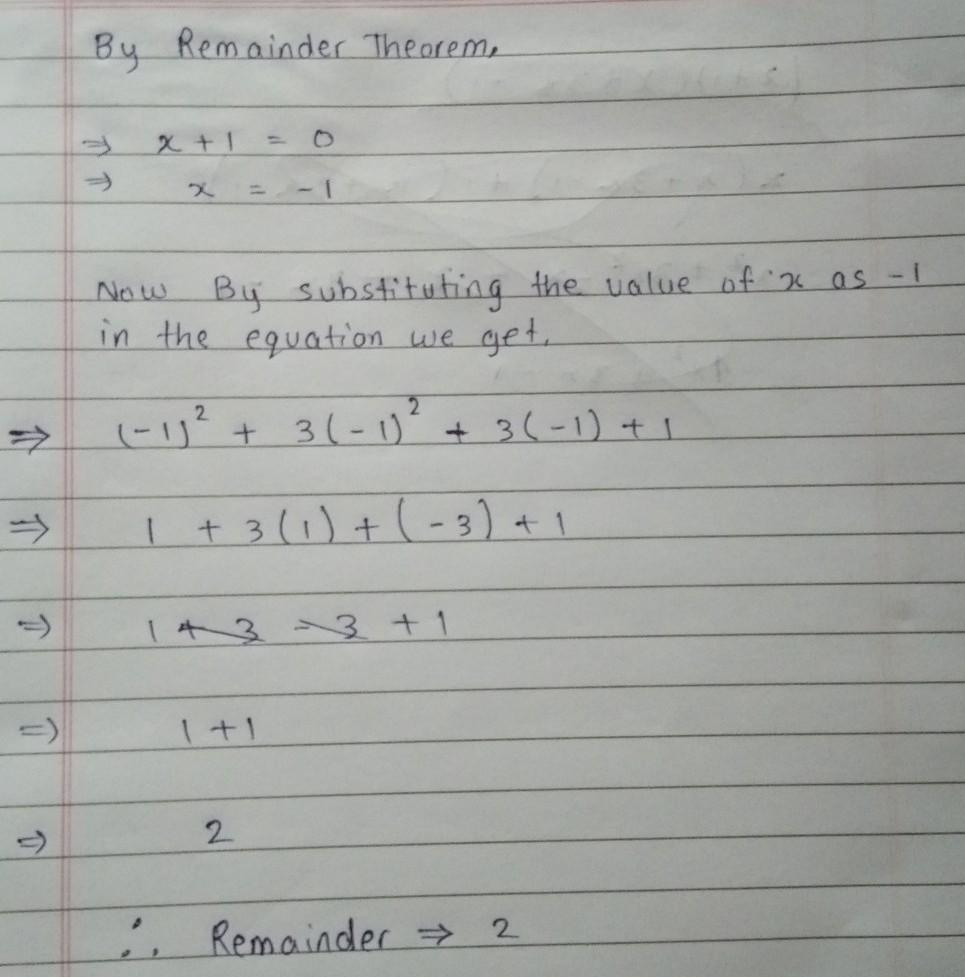 By Remainder Theorem,
⇒ x + 1 = 0
⇒ x = -1
Now By substituting the value of x as -1
in the equation we get,
⇒ (-1)² + 3(-1)² + 3(-1) + 1
⇒ 1 + 3(1) + (-3) + 1
⇒ 1 + 3 - 3 + 1
⇒ 1 + 1
⇒ 2
∴ Remainder ⇒ 2